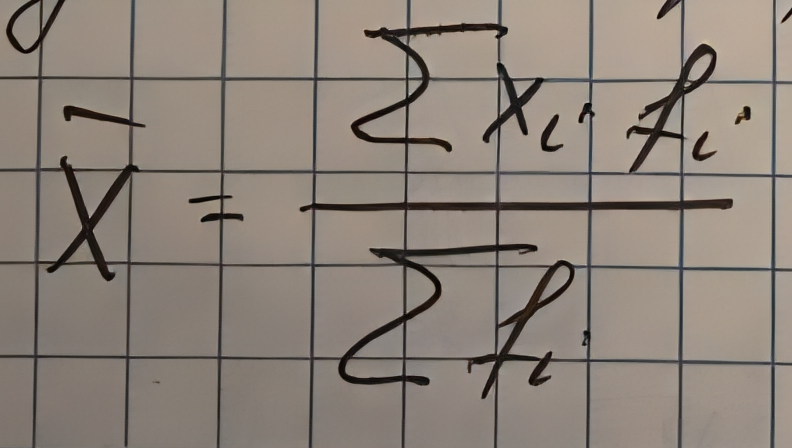 X̄ = ∑ xᵢ fᵢ / ∑ fᵢ